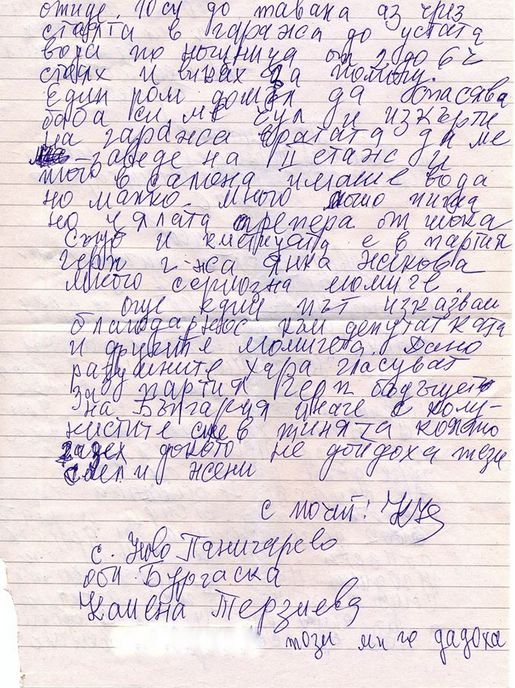 отиде. Посу до тавана аз чрез
стаята в гаража до устата
вода по нощница от 2 до 6 ч
стаях и виках за помощ.
Един ром дошъл да спасява
баба си, ме чул и изкърти
на гаража вратата да ме
заведе на II етаж и
там в салона имаше вода
но малко. много лошо пиха
но цялата треперя от шока
студ и кметицата е в партия
герп г-жа Янка Жекова
много сериозна момиче,
още един път изказвам
благодарнос към депутатката
и другите момичета. Дано
разумните хора гласуват
за партия Герп бъдъщето
на България иначе с кому-
нистите сме в тинята която
бях докато не дойдоха тези
смели жени
с почит!
с. Ново Паничарево
общ. Бургаска
Калина Терзиева
този ми го дадоха